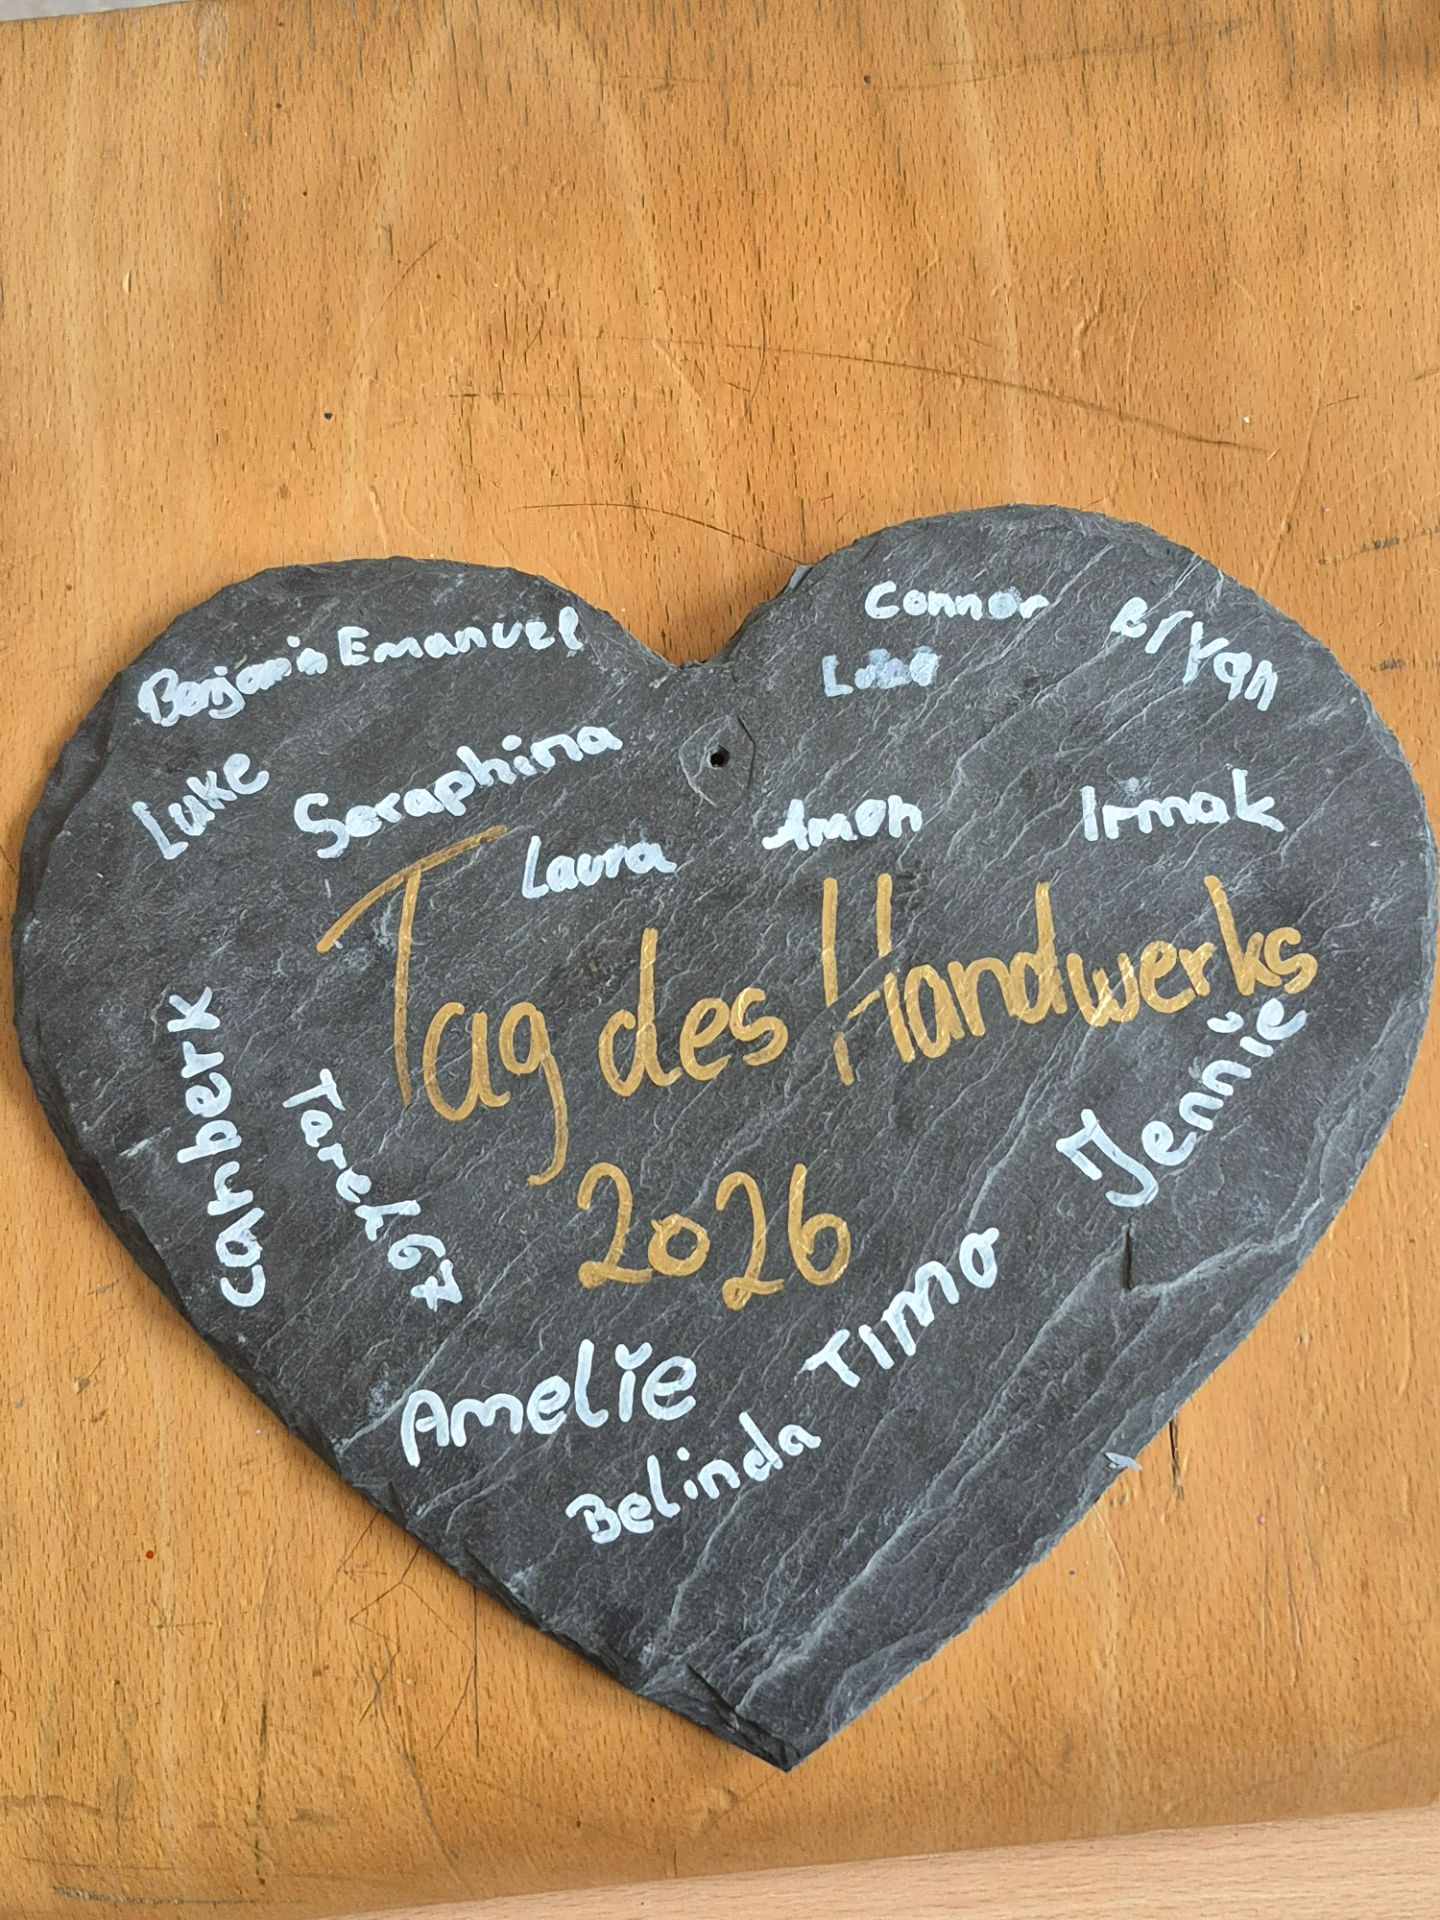 Benjamin Emanuel
Connor
Bryan
Luke
Seraphina
Laura
Amon
Irmak
Tag des Handwerks
2026
Canberk
Tarek67
Jennie
Timo
Amelie
Belinda